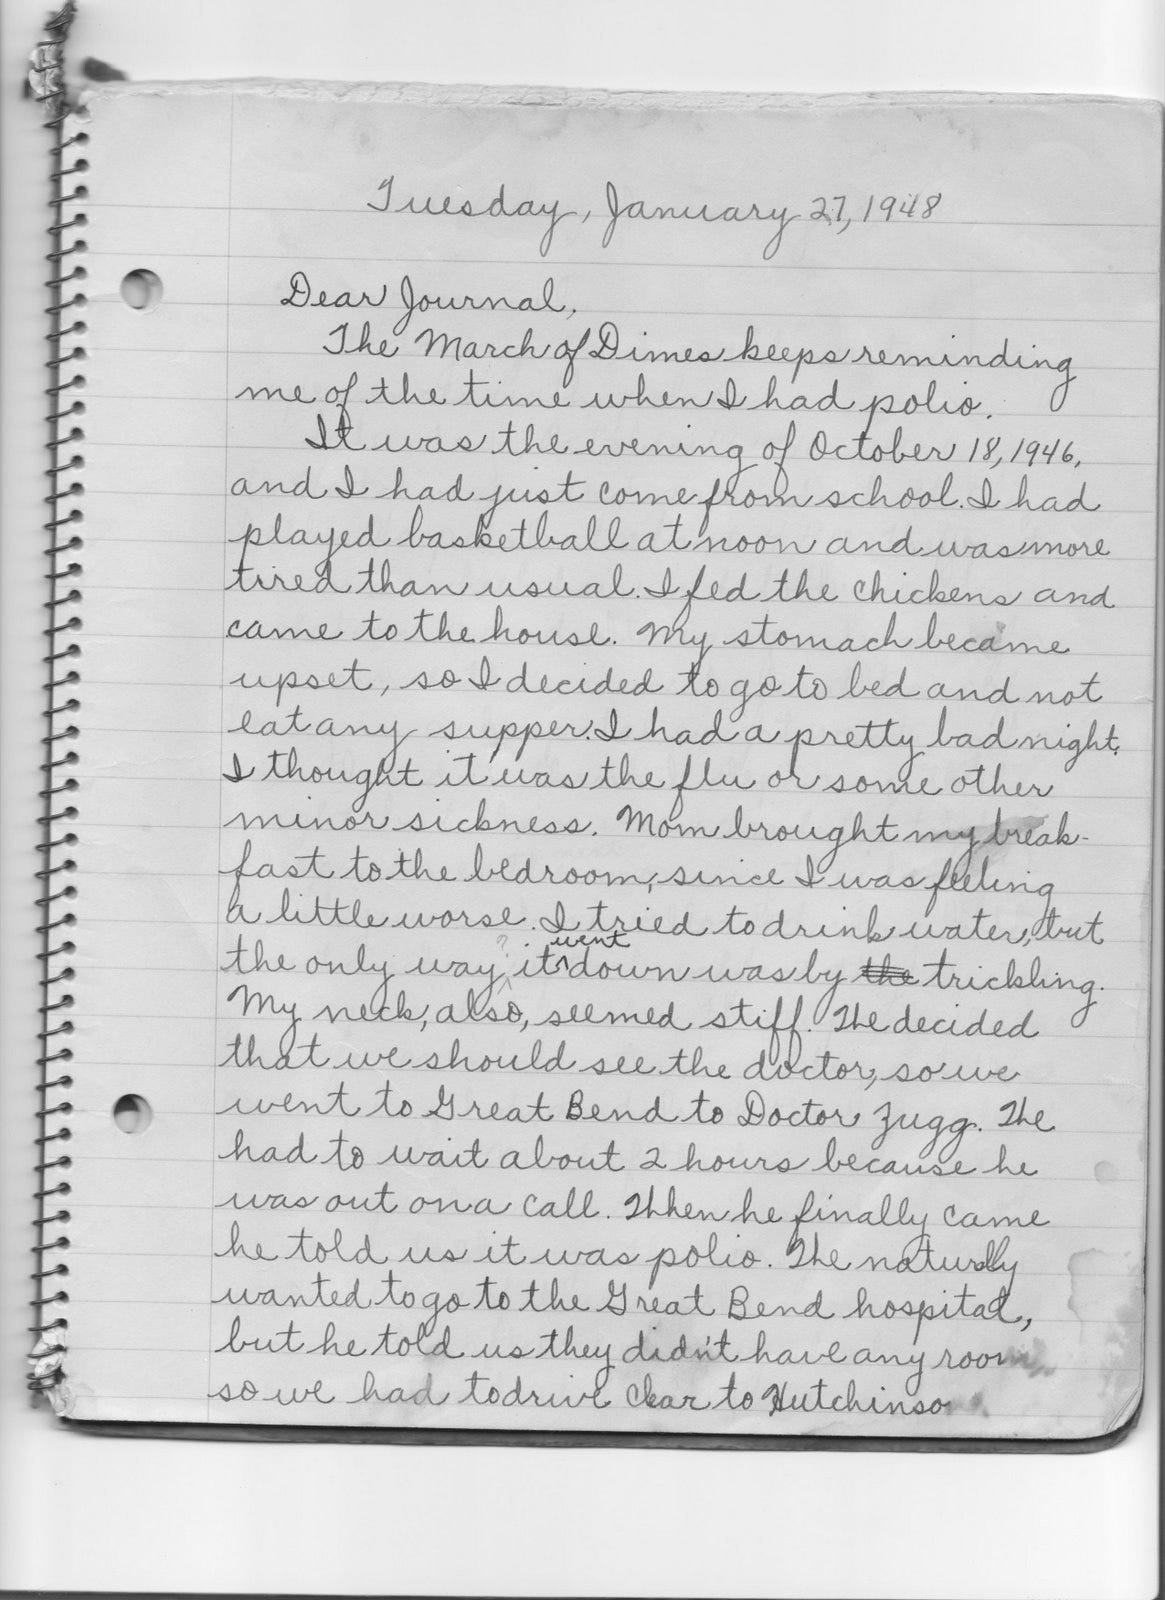 Tuesday, January 27, 1948
Dear Journal,
The March of Dimes keeps reminding
me of the time when I had polio.
It was the evening of October 18, 1946,
and I had just come from school. I had
played basketball at noon and was more
tired than usual. I fed the chickens and
came to the house. My stomach became
upset, so I decided to go to bed and not
eat any supper. I had a pretty bad night.
I thought it was the flu or some other
minor sickness. Mom brought my break-
fast to the bedroom, since I was feeling
a little worse. I tried to drink water, but
the only way, it went down was by the trickling.
My neck, also, seemed stiff. We decided
that we should see the doctor, so we
went to Great Bend to Doctor Zugg. We
had to wait about 2 hours because he
was out on a call. When he finally came
he told us it was polio. We naturally
wanted to go to the Great Bend hospital,
but he told us they didn't have any room
so we had to drive clear to Hutchinso